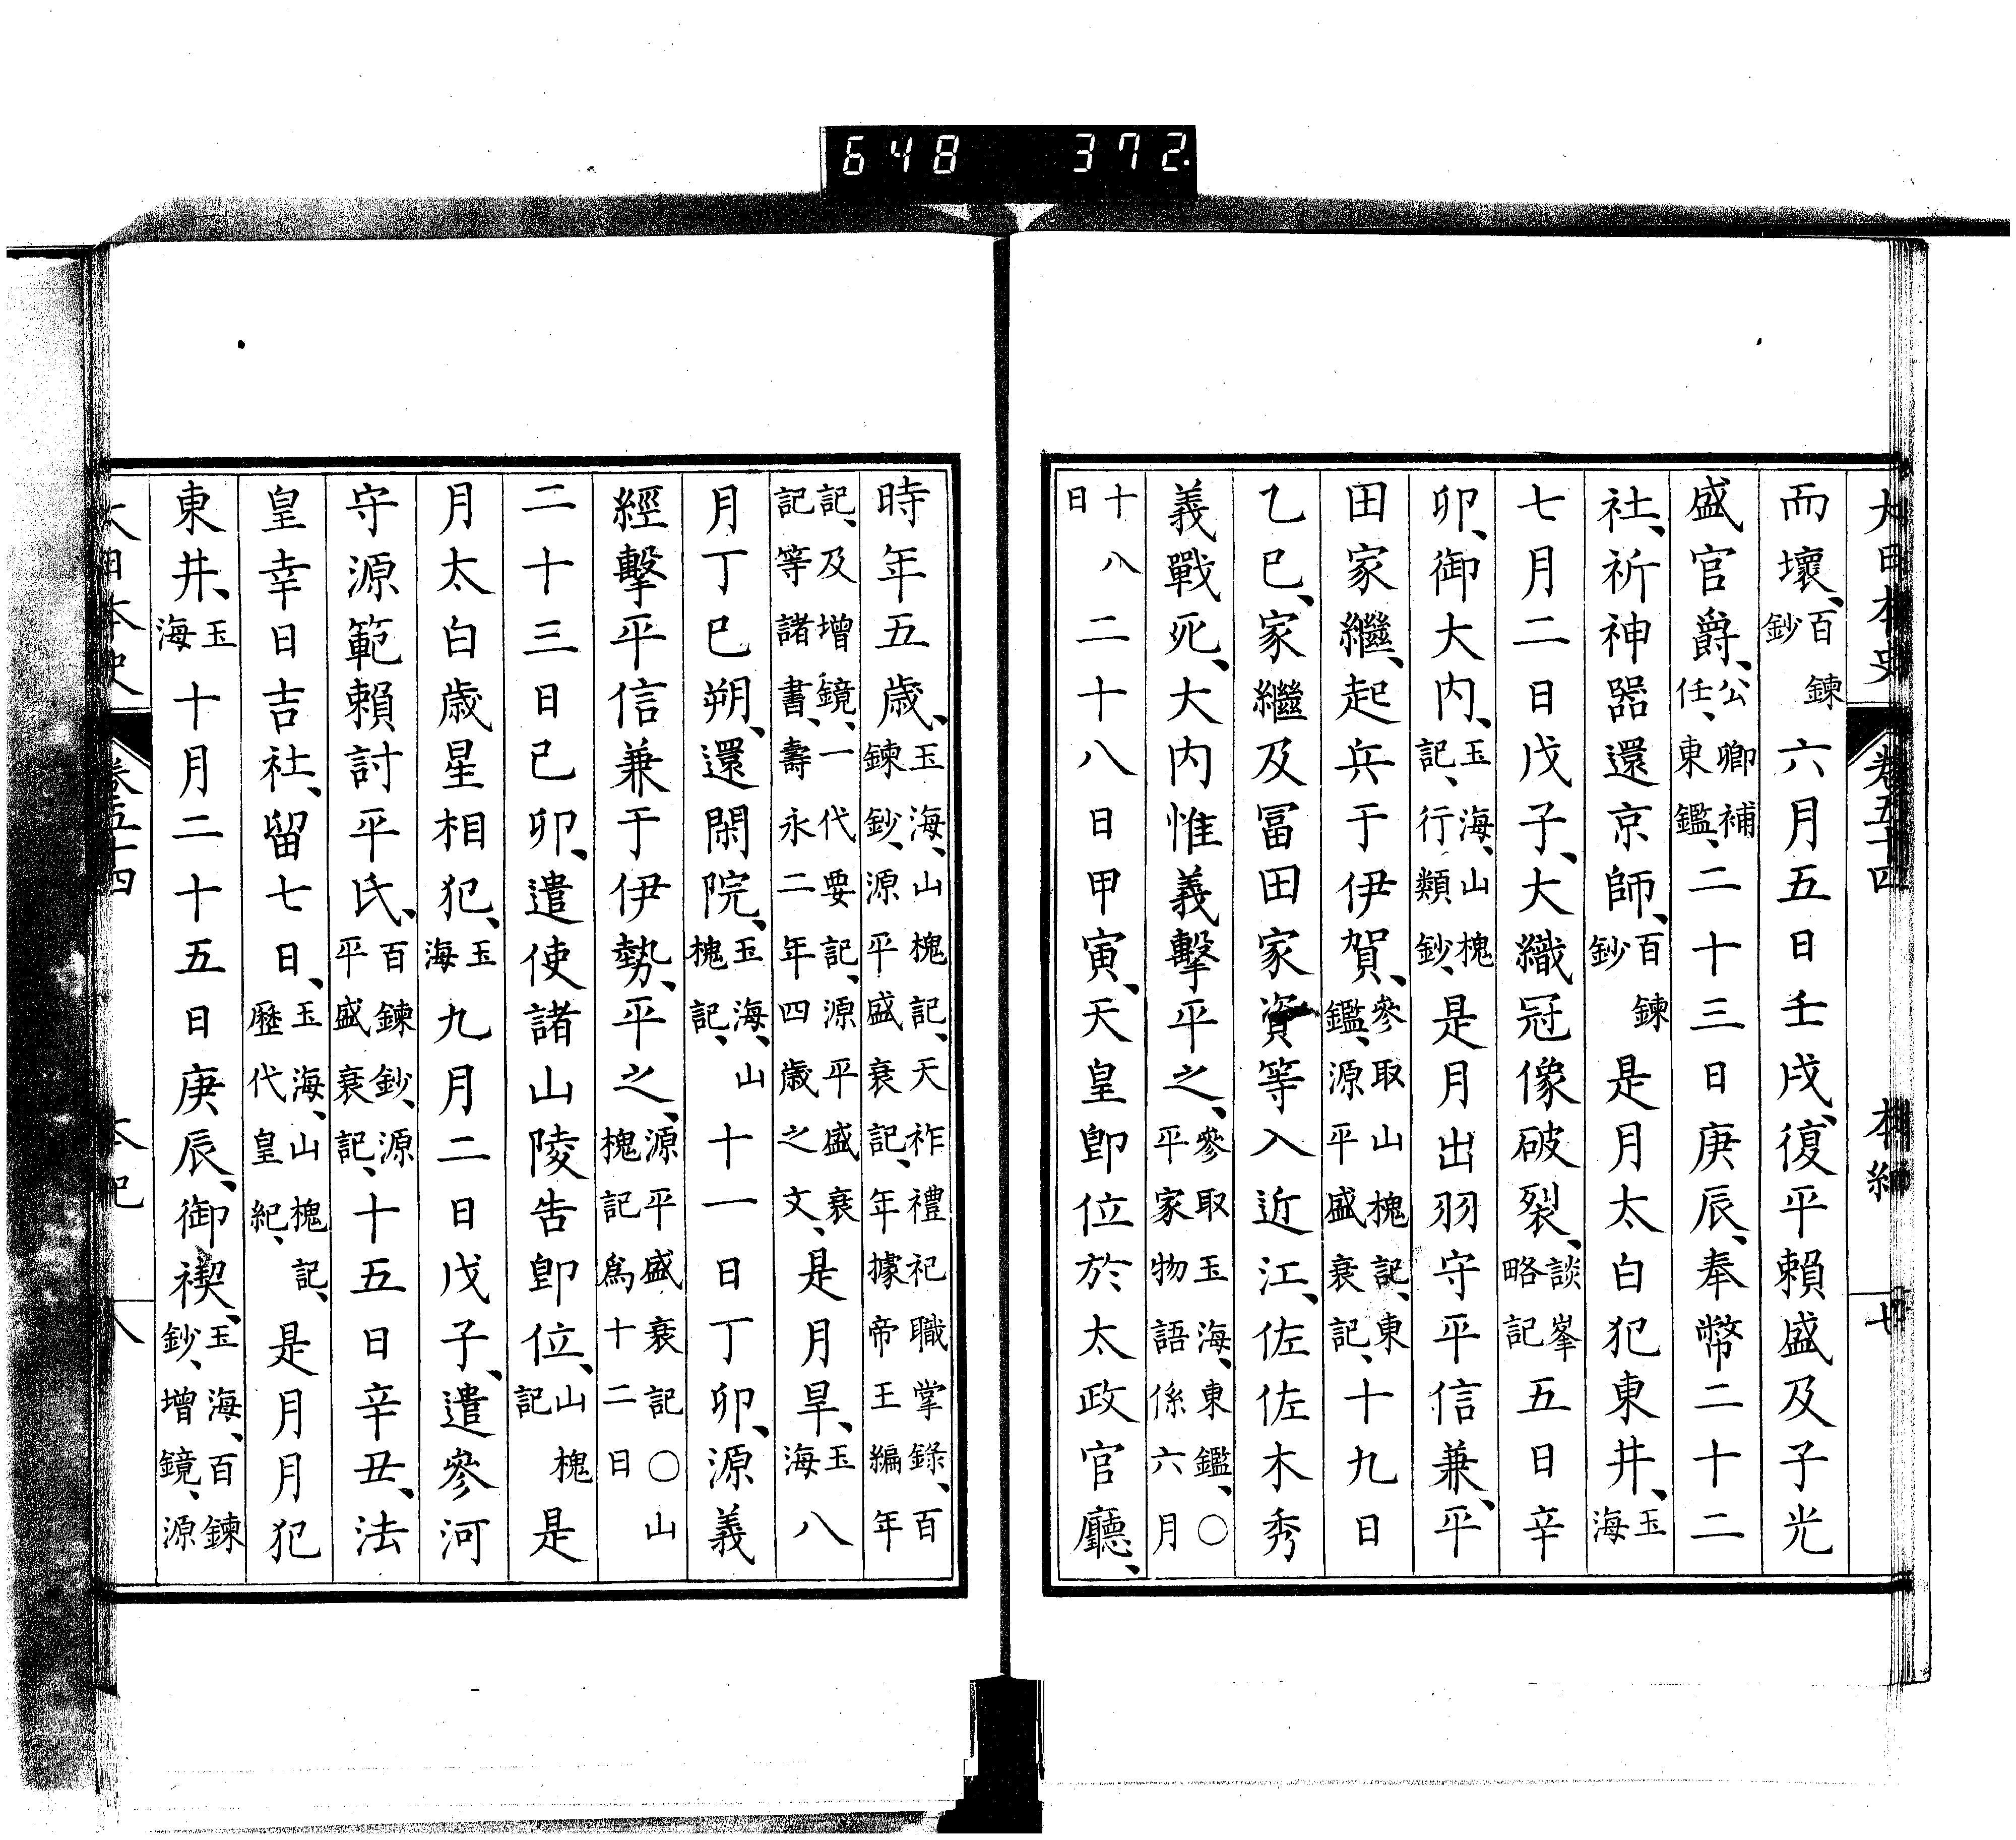 648 372
大日本史 卷五十四 本紀 七
而壞、百鍊鈔六月五日壬戌、復平賴盛及子光
盛官爵、公卿補任、東鑑、二十三日庚辰、奉幣二十二
社、祈神器還京師、百鍊鈔是月太白犯東井、玉海
七月二日戊子、大織冠像破裂、談峯略記五日辛
卯、御大内、玉海、山槐記、行類鈔、是月出羽守平信兼、平
田家繼、起兵于伊賀、參取山槐記、東鑑、源平盛衰記、十九日
乙巳、家繼及冨田家資等入近江、佐佐木秀
義戰死、大内惟義擊平之、參取玉海、東鑑、○平家物語係六月
十八日二十八日甲寅、天皇卽位於太政官廳、
時年五歳、玉海、山槐記、天祚禮祀職掌錄、百鍊鈔、源平盛衰記、年據帝王編年
記、及增鏡、一代要記、源平盛衰記等諸書、壽永二年四歳之文、是月旱、玉海八
月丁巳朔、還閑院、玉海、山槐記、十一日丁卯、源義
經擊平信兼于伊勢、平之、源平盛衰記○山槐記爲十二日
二十三日己卯、遣使諸山陵告卽位、山槐記是
月太白歳星相犯、玉海九月二日戊子、遣參河
守源範賴討平氏、百鍊鈔、源平盛衰記、十五日辛丑、法
皇幸日吉社、留七日、玉海、山槐記、歷代皇紀、是月月犯
東井、玉海十月二十五日庚辰、御禊、玉海、百鍊鈔、增鏡、源
大日本史 卷五十四 本紀 八